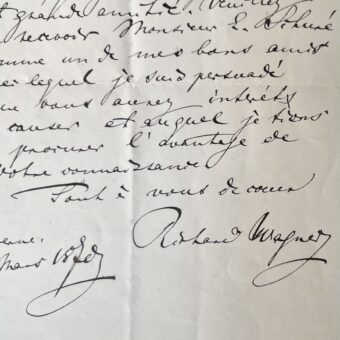 grande amitié. Veuillez
recevoir Monsieur E. Schuré
comme un de mes bons amis
lequel je suis persuadé
que vous aurez intérêt
causer et auquel je tiens
procurer l'avantage de
votre connaissance
Tout à vous de cœur
Richard Wagner
Mars